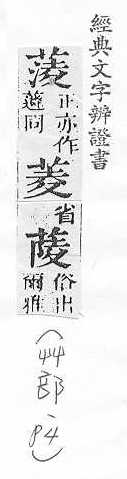 經典文字辨證書
蔆
正亦作
同
菱
省
䔖
俗出
爾雅
(艸部、